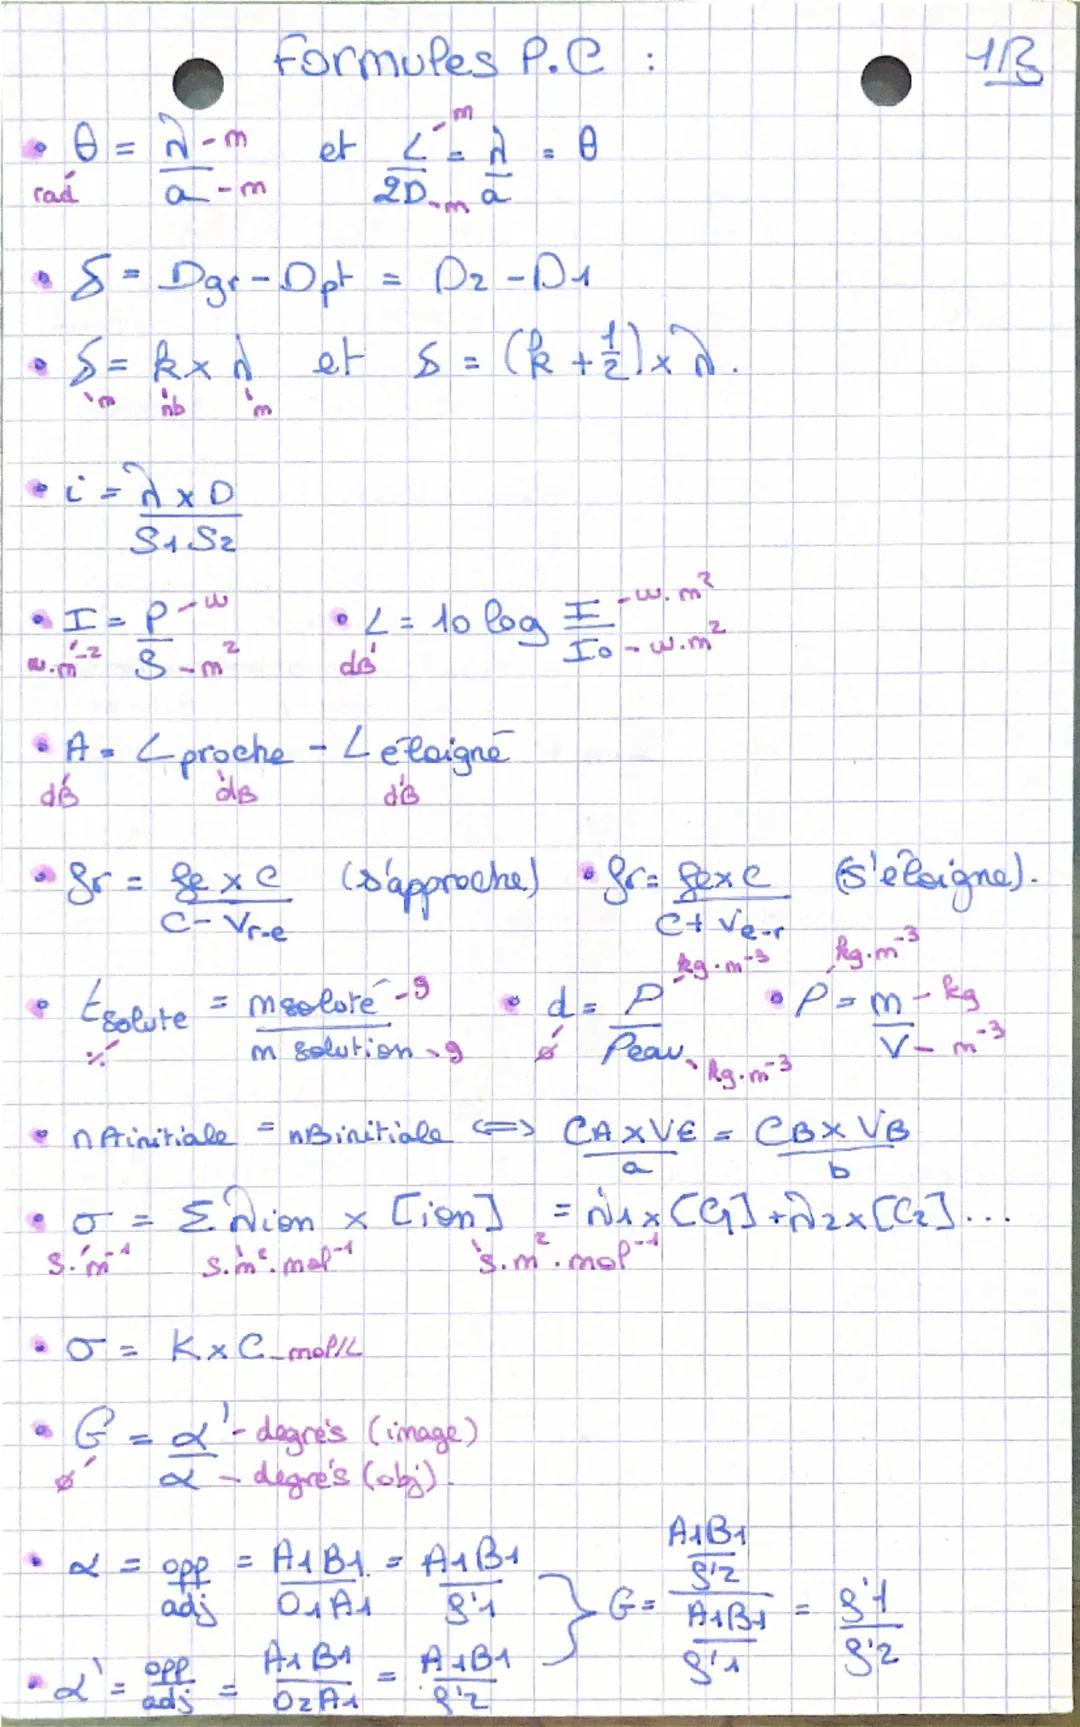 Formules P.C : 1/3
• θ = λ - m / a - m et L - m / 2D - m = λ / a = θ
rad
• δ = Dgr - Dpt = D2 - D1
• δ = k x λ et δ = (k + 1/2) x λ.
m nb m
• i = λ x D / S1S2
• I = P - w / S - m² • L = 10 log I - w.m² / I0 - w.m²
w.m⁻² dB
• A = L proche - L éloigné
dB dB dB
• fr = fe x c / c - Vr-e (s'approche) • fr = fe x c / c + Ve-r (s'éloigne).
• t soluté = m soluté - g / m solution - g • d = ρ kg.m⁻³ / ρeau kg.m⁻³ • ρ = m - kg / V - m⁻³
% ø kg.m⁻³
• nA initiale = nB initiale ⟺ CA x VE / a = CB x VB / b
• σ = Σ λion x [ion] = λ1 x [C1] + λ2 x [C2] ...
S.m⁻¹ S.m².mol⁻¹ S.m².mol⁻¹
• σ = K x C - mol/L
• G = α' - degrés (image) / α - degrés (obj).
ø
• α = opp / adj = A1B1 / O1A1 = A1B1 / f'1
• α' = opp / adj = A1B1 / O2A1 = A1B1 / f'2
} G = A1B1 / f'2 / A1B1 / f'1 = f'1 / f'2